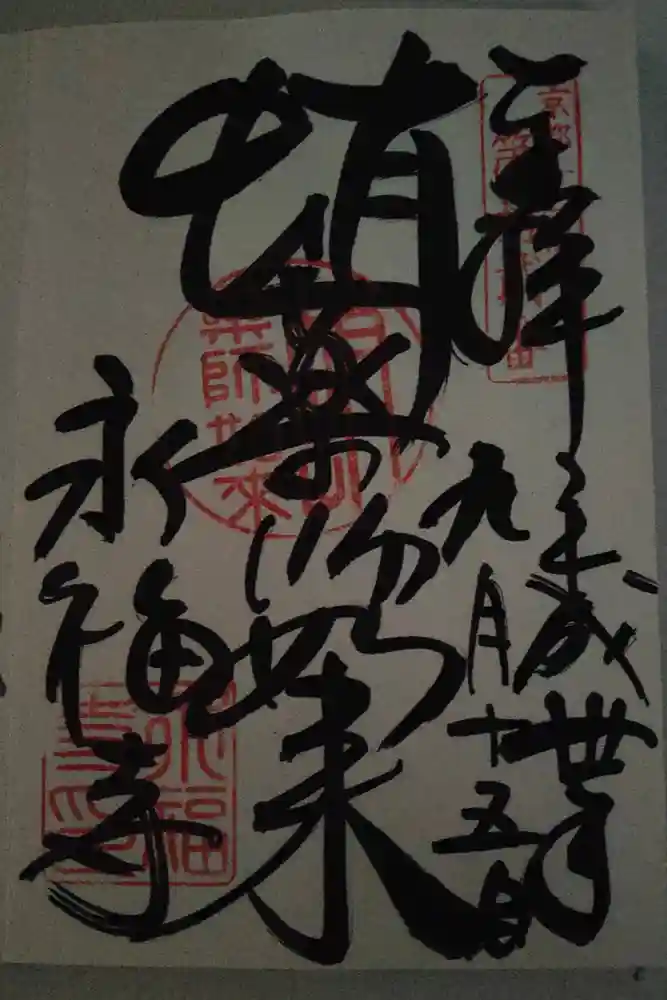 奉拝
平成丗年
九月十五日
蛸薬師如来
永福寺
京都
薬師如来
永福
寺印